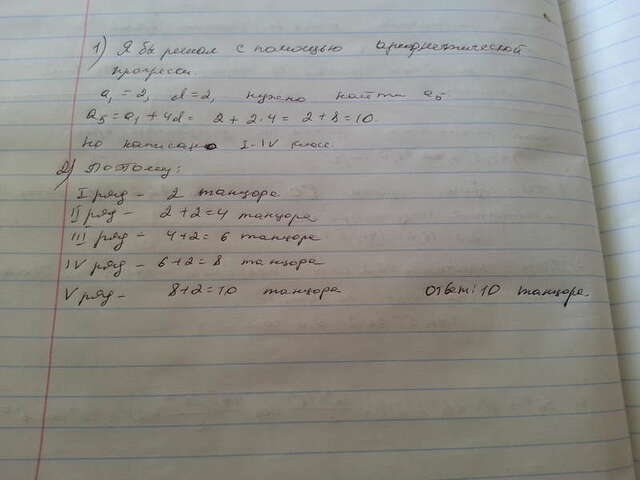 1) Я бы решал с помощью арифметической
прогрессии.
a₁ = 2, d = 2, нужно найти a₅
a₅ = a₁ + 4d = 2 + 2·4 = 2 + 8 = 10.
Но написано I-IV класс.
2) Поэтому:
I ряд – 2 танцора
II ряд – 2+2=4 танцора
III ряд – 4+2= 6 танцора
IV ряд – 6+2=8 танцора
V ряд – 8+2=10 танцора Ответ: 10 танцора.